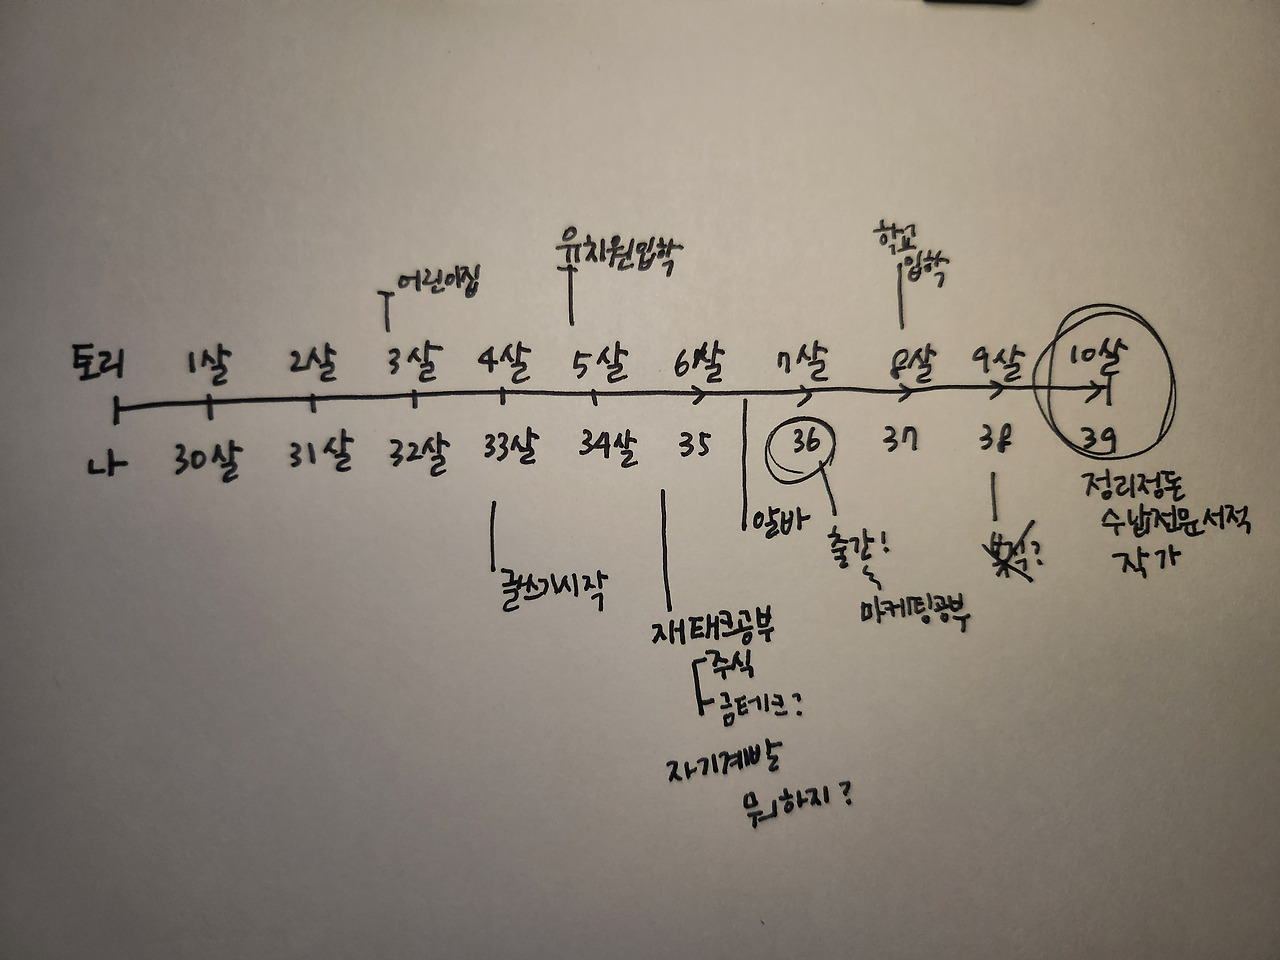 학교
입학
유치원입학
어린이집
토리 1살 2살 3살 4살 5살 6살 7살 8살 9살 10살
나 30살 31살 32살 33살 34살 35 36 37 38 39
정리정돈
수납전문서적
작가
알바
출간!
마케팅공부
글쓰기시작
재태크공부
주식
금테크?
자기계발
뭐하지?